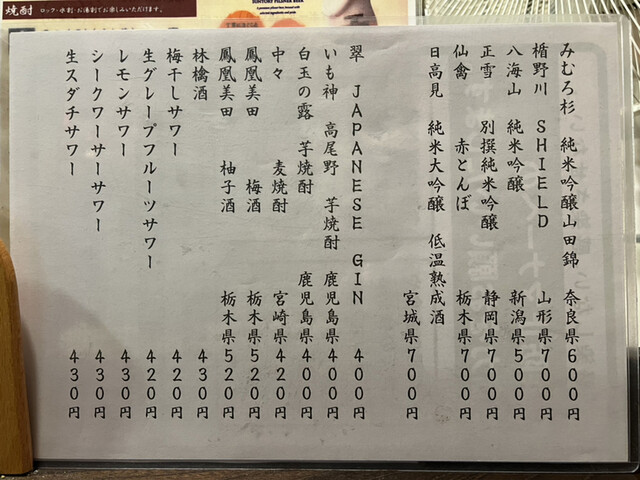 焼酎
ロック・水割・お湯割でお楽しみいただけます。
SUNTORY PILSNER BEER
みむろ杉 純米吟醸山田錦 奈良県600円
楯野川 SHIELD 山形県700円
八海山 純米吟醸 新潟県500円
正雪 別撰純米吟醸 静岡県700円
仙禽 赤とんぼ 栃木県700円
日高見 純米大吟醸 低温熟成酒
宮城県700円
翠 JAPANESE GIN 400円
いも神 高尾野 芋焼酎 鹿児島県400円
白玉の露 芋焼酎 鹿児島県400円
中々 麦焼酎 宮崎県420円
鳳凰美田 梅酒 栃木県520円
鳳凰美田 柚子酒 栃木県520円
林檎酒 430円
梅干しサワー 420円
生グレープフルーツサワー 420円
レモンサワー 430円
シークワーサーサワー 430円
生スダチサワー 430円